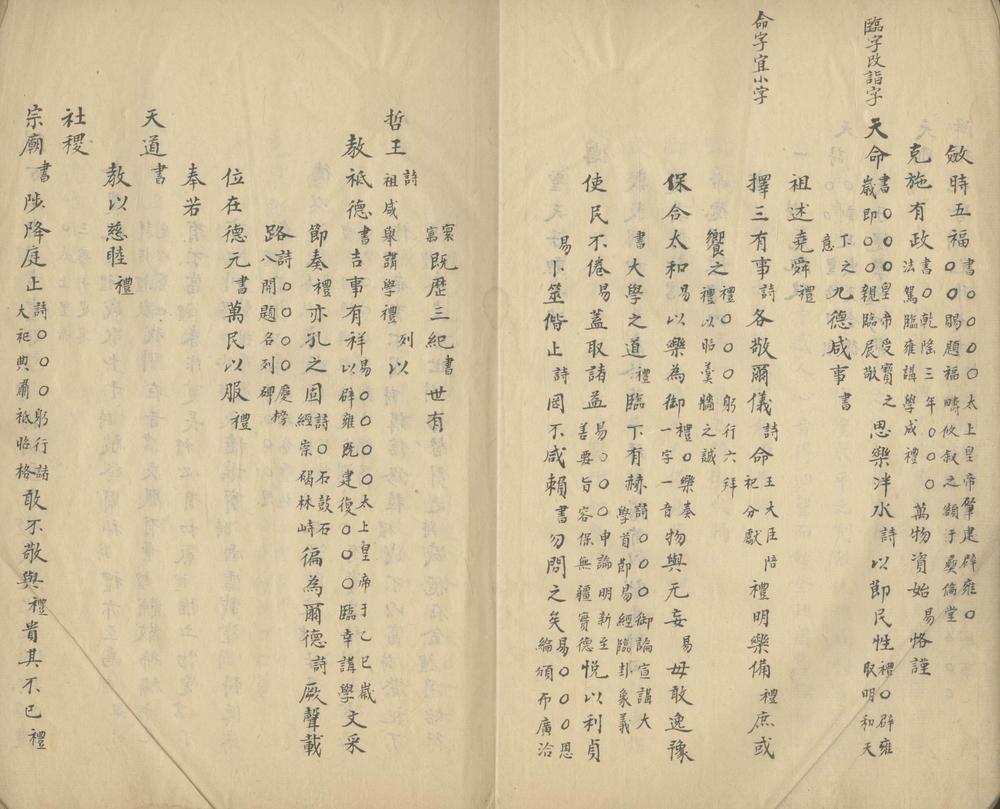 斂時五福書○○賜題福疇攸敘之額于彝倫堂太上皇帝肇建辟雍○
克施有政書○乾隆三年○○○法駕臨雍講學成禮萬物資始易恪謹
臨字改詣字
天命書○○○皇帝受寶之歲即○○親臨展敬思樂泮水詩以節民性禮○辟雍取明和天
下之意九德咸事書
祖述堯舜禮
命字宜小字
擇三有事詩各敬爾儀詩命王大臣陪祀分獻禮明樂備禮庶或
饗之禮○○○躬行六拜禮以昭羹牆之誠
保合太和易以樂為御禮○樂奏一字一音物與无妄易毋敢逸豫
書大學之道禮臨下有赫詩○○○御論宣講大學首節易經臨卦象義
使民不倦易蓋取諸益易○○○申論明新至善要旨容保無疆實德悅以利貞
易卜筮偕止詩罔不咸賴書勿問之矣易○○○恩綸頒布廣洽
寰寓既歷三紀書世有
哲王詩祖咸舉講學禮列以
教祗德書吉事有祥易○○○○太上皇帝于乙巳歲以辟雍既建復○○○臨幸講學文采
節奏禮亦孔之固詩○石鼓石經崇碣林峙徧為爾德詩厥聲載
路詩○○○○慶榜八開題名列碑
位在德元書萬民以服禮
奉若
天道書
教以慈睦禮
社稷
宗廟書陟降庭止詩○○○躬行諸大祀典肅祗昭格敢不敬與禮貴其不已禮